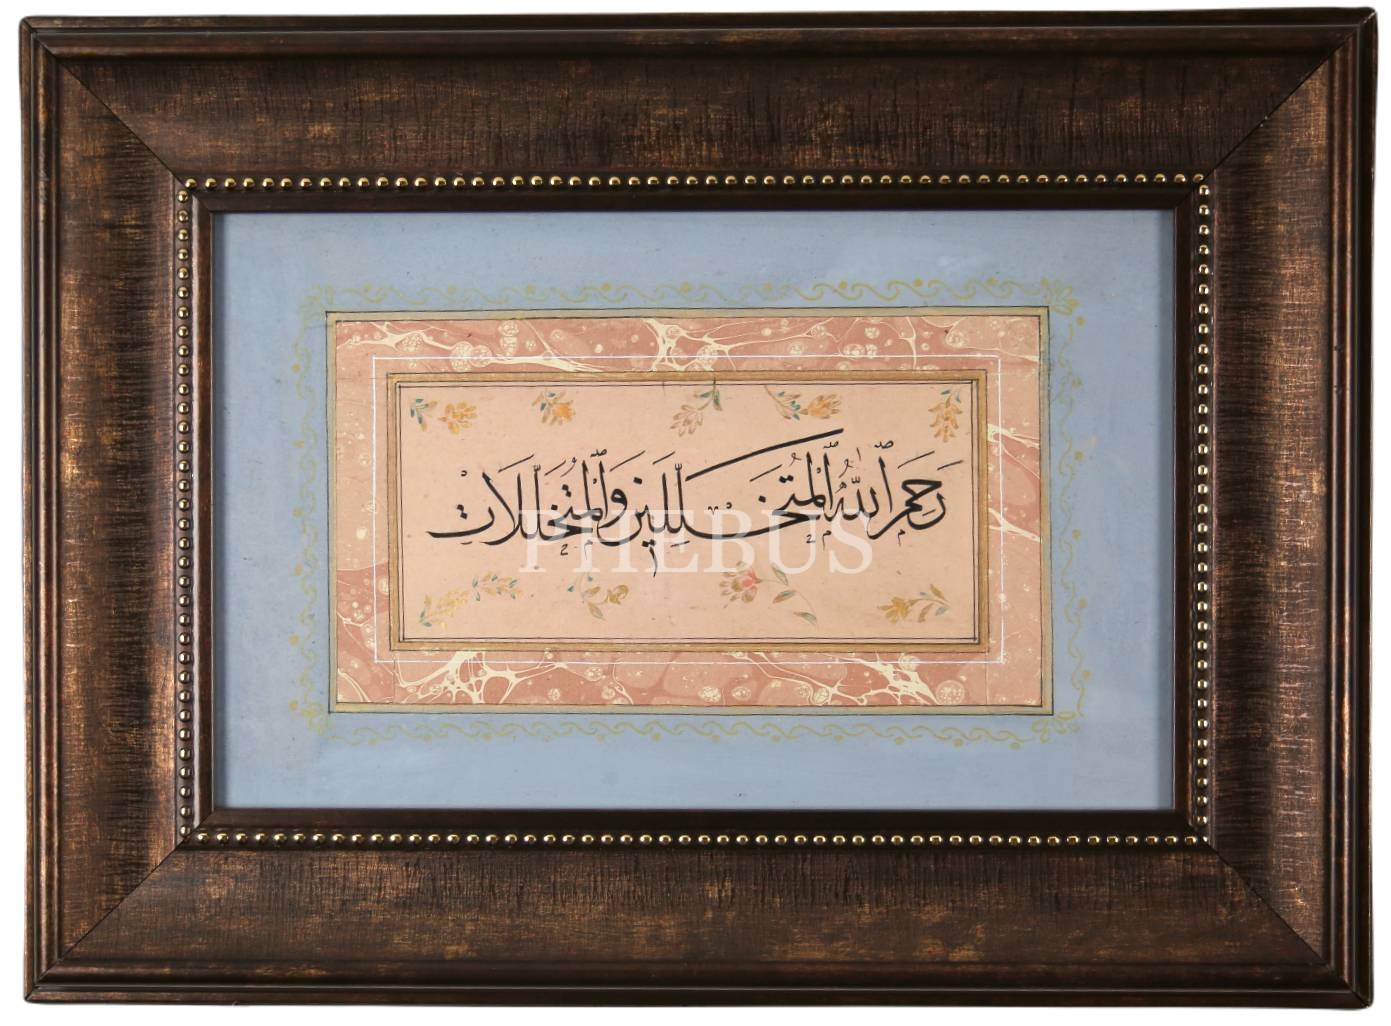 رَحِمَ ٱللّٰهُ ٱلْمُتَخَلِّلِينَ وَٱلْمُتَخَلِّلَاتِ
PHEBUS